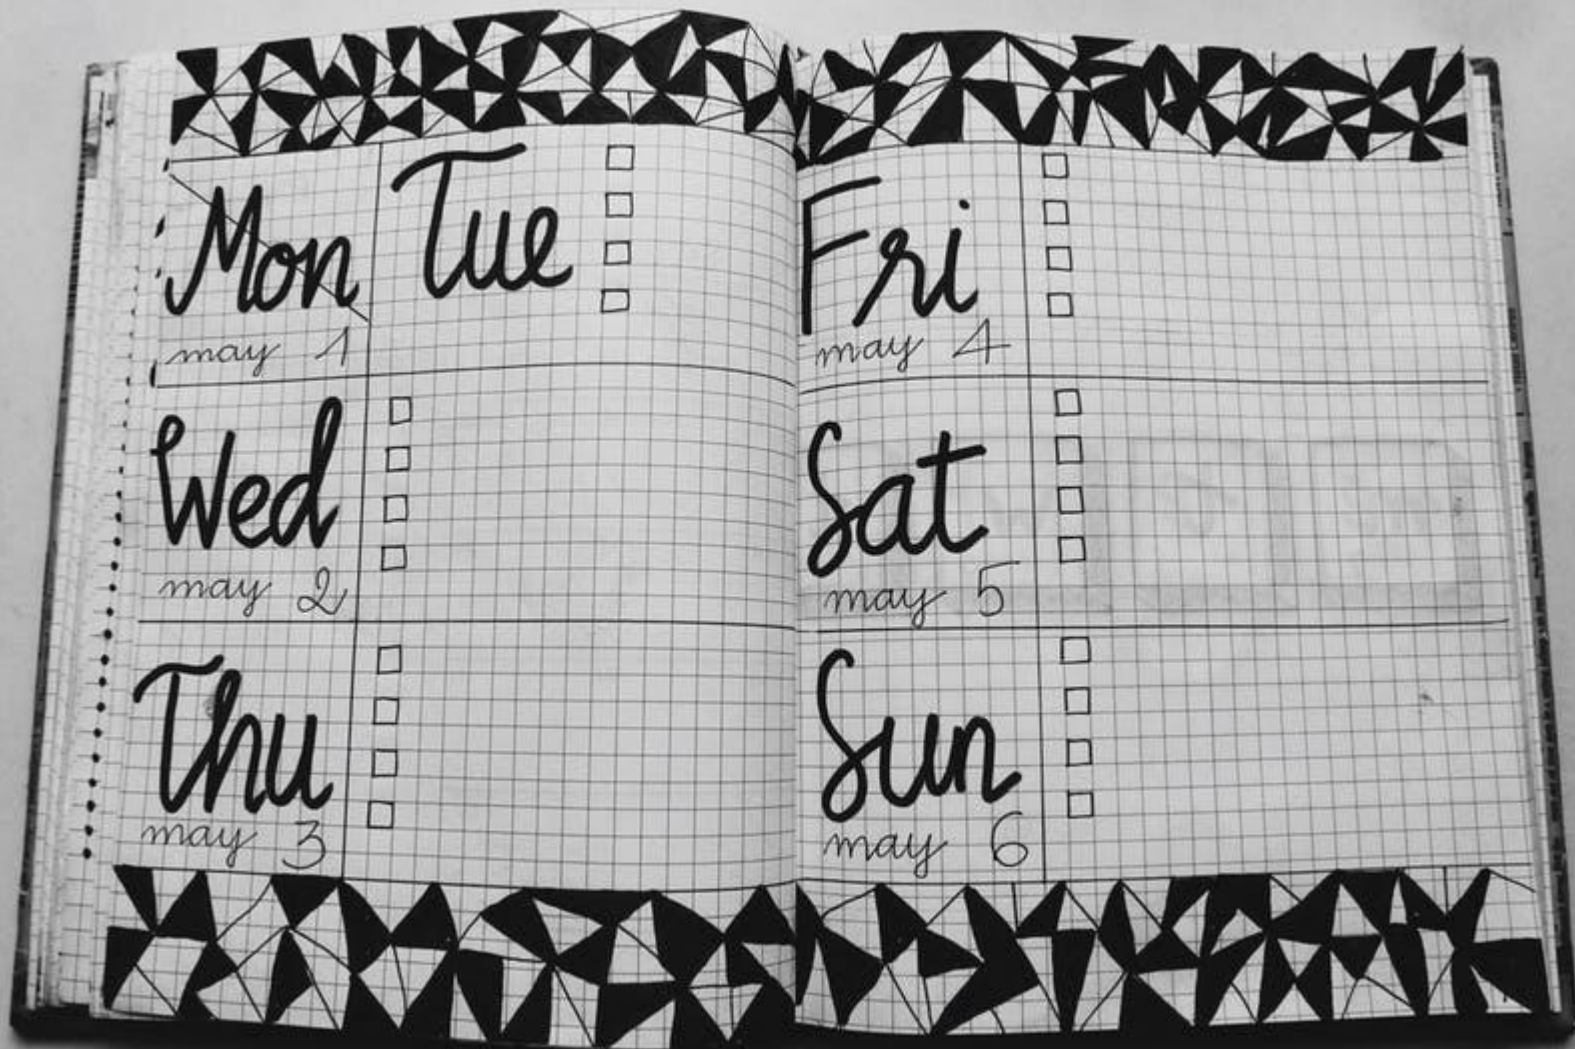 Mon
Tue
may 1
Wed
may 2
Thu
may 3
Fri
may 4
Sat
may 5
Sun
may 6